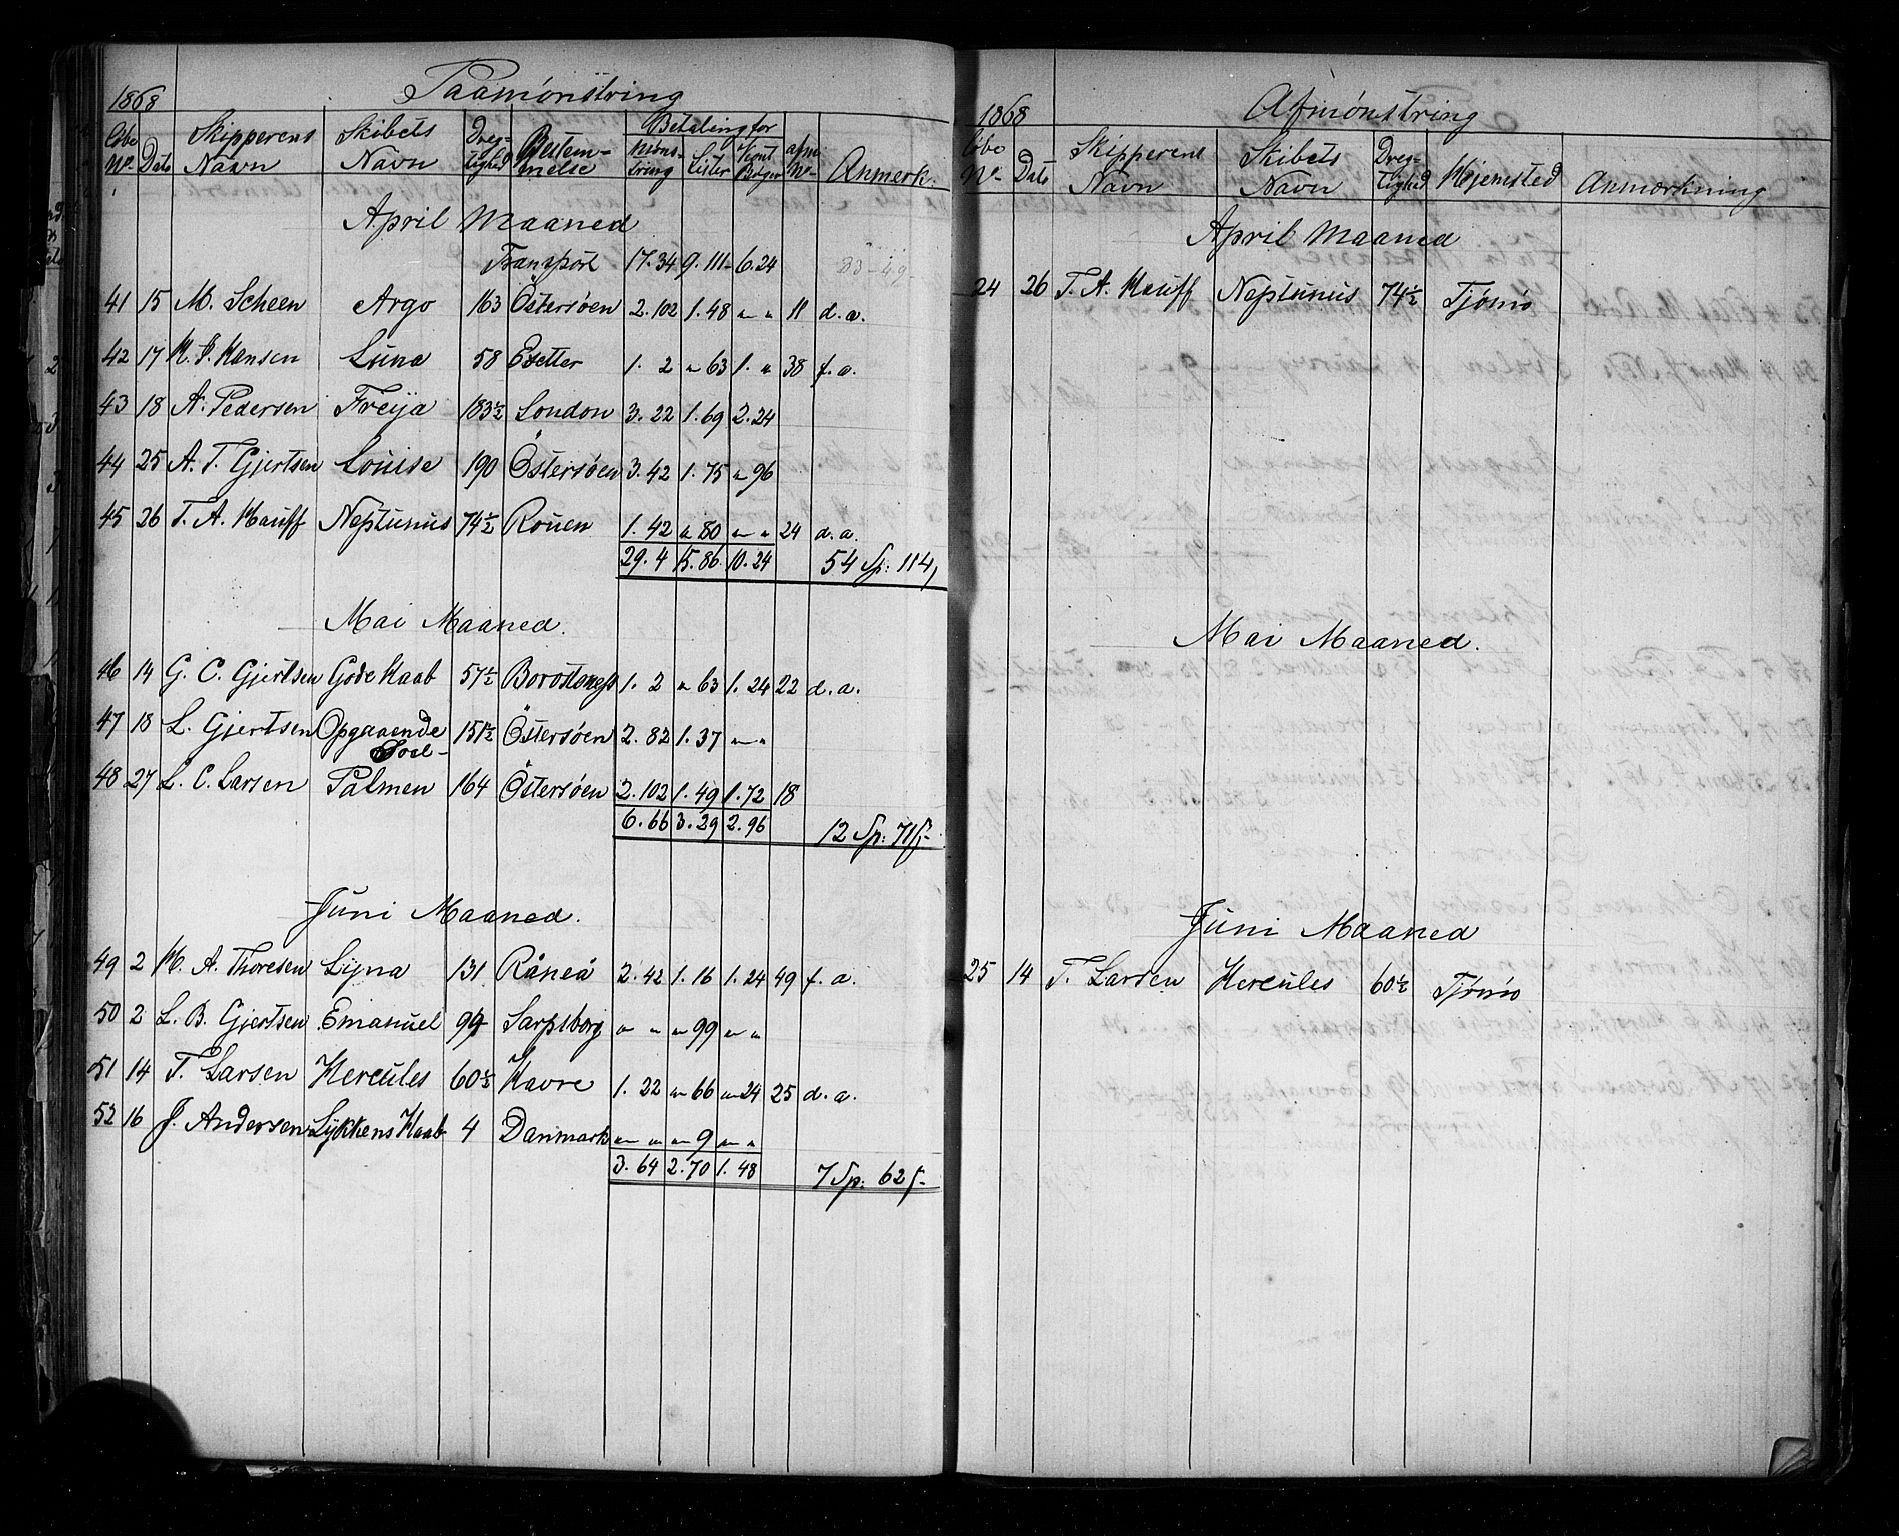 1868 Paamønstring
Løbe No. Date Skipperens Navn Skibets Navn Dreg-tighed Bestem-melse Betaling for Mønstring Lister Kont Bøger afm No. Anmerk.
April Maaned
Transport 17.34 9.111 6.24
41 15 M. Scheen Argo 163 Östersøen 2.102 1.48 " " 11 d.a.
42 17 H. J. Hansen Luna 58 Exetter 1. 2 " 63 1. " 38 f.a.
43 18 A. Pedersen Freija 183½ London 3. 22 1. 69 2. 24
44 25 A. T. Gjertsen Louise 190 Östersøen 3. 42 1. 75 " 96
45 26 T. A. Hauff Neptunus 74½ Rouen 1. 42 " 80 " " 24 d.a.
29. 4 15. 86 10. 24 54 Sp: 114,
Mai Maaned.
46 14 G. C. Gjertsen Gode Haab 57½ 1. 2 " 63 1. 24 22 d.a.
47 18 L. Gjertsen Opgaaende Soel 151½ Östersøen 2. 82 1. 37 " "
48 27 L. C. Larsen Palmen 164 Östersøen 2. 102 1. 49 1. 72 18
6. 66 3. 29 2. 96 12 Sp: 71ſ-
Juni Maaned.
49 2 M. A. Thoresen Lyna 131 Råneå 2. 42 1. 16 1. 24 49 f.a.
50 2 L. B. Gjertsen Emanuel 99 Sarpsborg " " " 99 " "
51 14 T. Larsen Hercules 60½ Havre 1. 22 " 66 " 24 25 d.a.
52 16 J. Andersen Lykkens Haab 4 Danmark " " " 9 " "
3. 64 2. 70 1. 48 7 Sp: 62ſ-
1868 Afmønstring
Løbe No. Date Skipperens Navn Skibets Navn Dreg-tighed Hjemsted Anmærkning
April Maaned
24 26 T. A. Hauff Neptunus 74½ Tjømø
Mai Maaned.
Juni Maaned
25 14 T. Larsen Hercules 60½ Tjømø